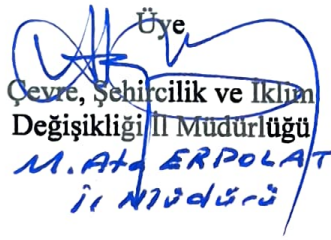 Üye
Çevre, Şehircilik ve İklim
Değişikliği İl Müdürlüğü
M. Ata ERPOLAT
İl Müdürü